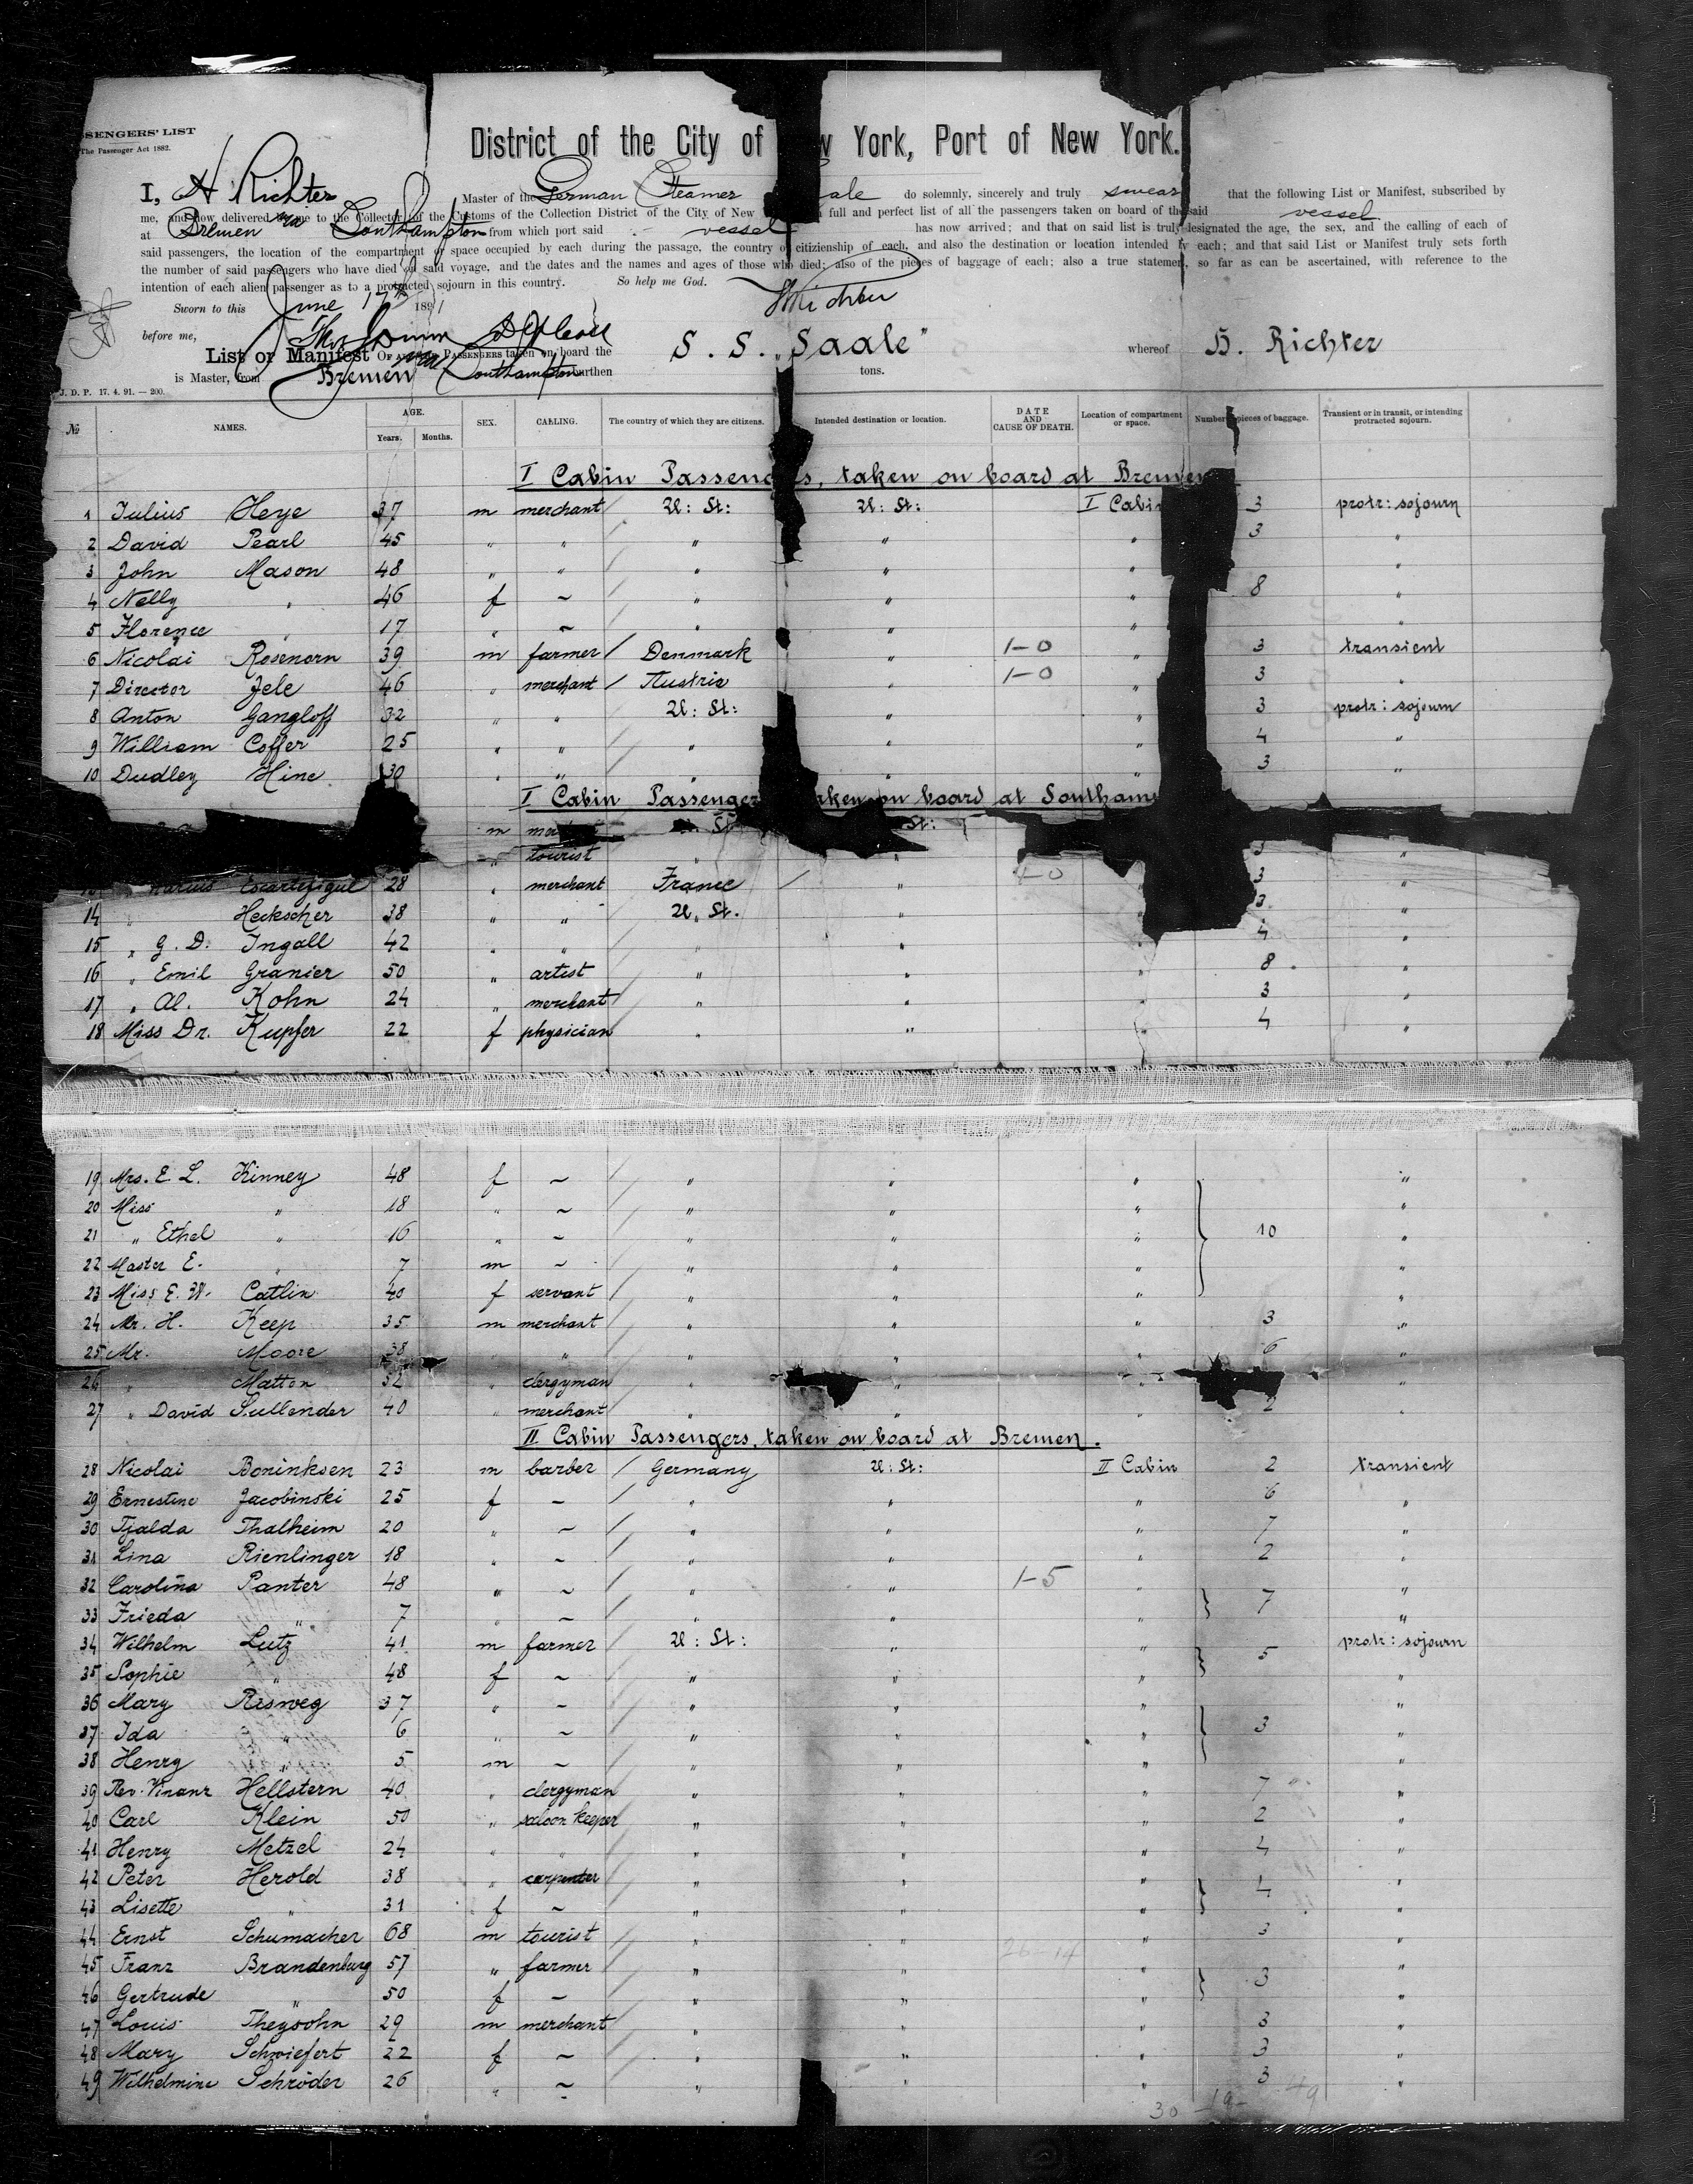 SENGERS' LIST
The Passenger Act 1882.
District of the City of w York, Port of New York.
I, H Richter Master of the German Steamer ale do solemnly, sincerely and truly swear that the following List or Manifest, subscribed by
me, and now delivered by me to the Collector of the Customs of the Collection District of the City of New full and perfect list of all the passengers taken on board of the said vessel
at Bremen via Southampton from which port said vessel has now arrived; and that on said list is truly designated the age, the sex, and the calling of each of
said passengers, the location of the compartment or space occupied by each during the passage, the country of citizienship of each, and also the destination or location intended by each; and that said List or Manifest truly sets forth
the number of said passengers who have died on said voyage, and the dates and the names and ages of those who died; also of the pieces of baggage of each; also a true statement, so far as can be ascertained, with reference to the
intention of each alien passenger as to a protracted sojourn in this country. So help me God.
Sworn to this June 17th 1891 HRichter
before me,
List or Manifest OF ALL THE PASSENGERS taken on board the S. S. „Saale" whereof H. Richter
is Master, from Bremen via Southampton burthen tons.
J. D. P. 17. 4. 91. — 200.
№ NAMES. AGE. Years. Months. SEX. CALLING. The country of which they are citizens. Intended destination or location. DATE AND CAUSE OF DEATH. Location of compartment or space. Number pieces of baggage. Transient or in transit, or intending protracted sojourn.
I Cabin Passengers, taken on board at Bremen
1 Julius Heye 37 m merchant U: St: U: St: I Cabin 3 protr: sojourn
2 David Pearl 45 " " " " " 3 "
3 John Mason 48 " " " " " "
4 Nelly " 46 f ~ " " " 8 "
5 Florence " 17 " ~ " " " "
6 Nicolai Rosenorn 39 m farmer Denmark " 1-0 " 3 transient
7 Director Jele 46 " merchant Austria " 1-0 " 3 "
8 Anton Gangloff 32 " " U: St: " " 3 protr: sojourn
9 William Coffer 25 " " " " " 4 "
10 Dudley Hine 30 " " " " " 3 "
I Cabin Passenger taken on board at Southam
m St St:
" tourist " " 3 "
Marius Escartefigue 28 " merchant France " 1-0 " 3 "
14 " Heckscher 38 " " U. St. " 3 "
15 " G. D. Ingall 42 " " " " " 4 "
16 " Emil Granier 50 " artist " " " 8 "
17 " Al. Kohn 24 " merchant " " " 3 "
18 Miss Dr. Kupfer 22 f physician " " " 4 "
19 Mrs. E. L. Kinney 48 f ~ " " " "
20 Miss " 18 " ~ " " " "
21 " Ethel " 16 " ~ " " " 10 "
22 Master E. " 7 m ~ " " " "
23 Miss E. W. Catlin 40 f servant " " " "
24 Mr. H. Keep 35 m merchant " " " 3 "
25 Mr. Moore 38 " " " " " 6 "
26 " Matton 52 " clergyman " " " "
27 " David Sullender 40 " merchant " " 2 "
II Cabin Passengers, taken on board at Bremen.
28 Nicolai Boninksen 23 m barber Germany U: St: II Cabin 2 transient
29 Ernestine Jacobinski 25 f ~ " " " 6 "
30 Tjalda Thalheim 20 " ~ " " " 7 "
31 Lina Rienlinger 18 " ~ " " " 2 "
32 Carolina Panter 48 " ~ " " 1-5 " 7 "
33 Frieda " 7 " ~ " " " "
34 Wilhelm Lutz 41 m farmer U: St: " " 5 protr: sojourn
35 Sophie " 48 f ~ " " " "
36 Mary Risweg 37 " ~ " " " "
37 Ida " 6 " ~ " " " 3 "
38 Henry " 5 m ~ " " " "
39 Rev. Vinanz Hellstern 40 " clergyman " " " 7 "
40 Carl Klein 50 " saloon keeper " " " 2 "
41 Henry Metzel 24 " " " " " 4 "
42 Peter Herold 38 " carpenter " " " 4 "
43 Lisette " 31 f ~ " " " "
44 Ernst Schumacher 68 m tourist " " " 3 "
45 Franz Brandenburg 57 " farmer " " " 3 "
46 Gertrude " 50 f ~ " " " "
47 Louis Theysohn 29 m merchant " " " 3 "
48 Mary Schwiefert 22 f ~ " " " 3 "
49 Wilhelmine Schröder 26 " ~ " " " 3 "
30 -19- 49